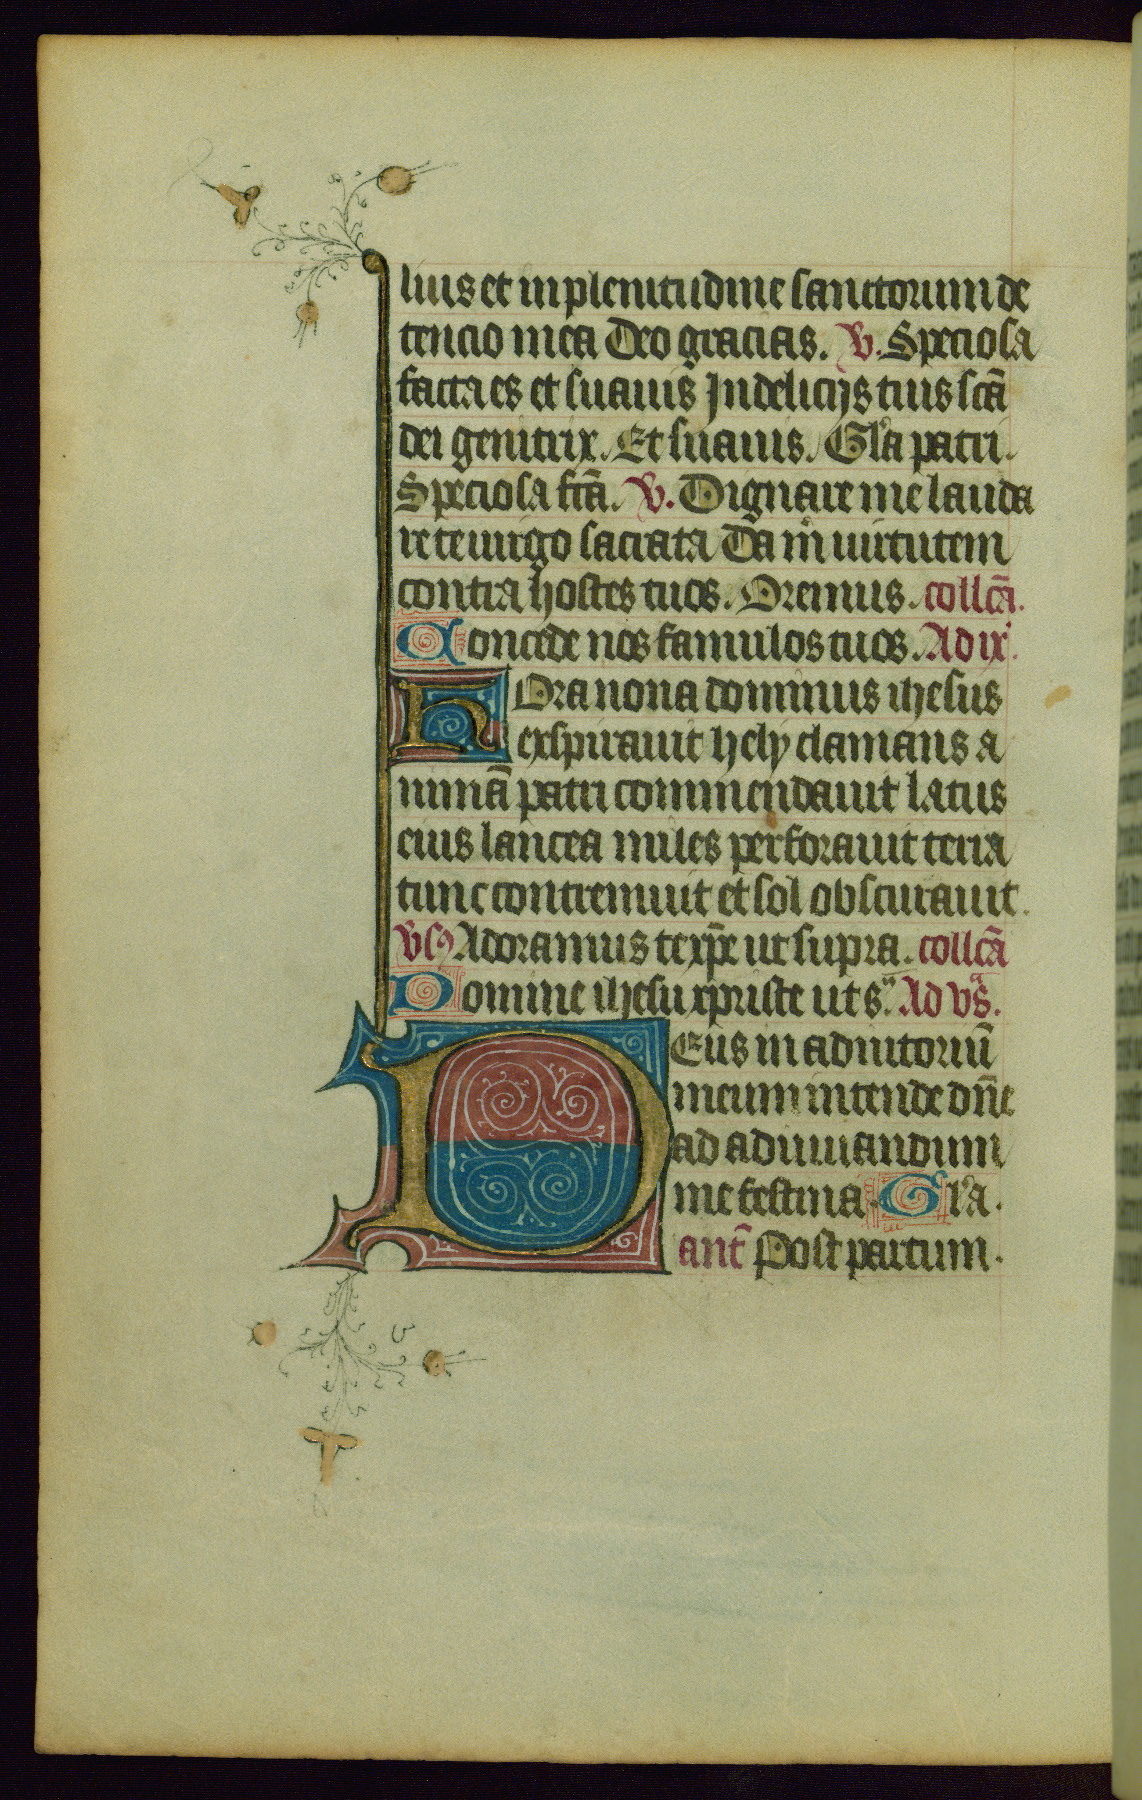 lius et in plenitudine sanctorum de
tencio mea Deo gracias. V. Speciosa
facta es et suauis Jn delicijs tuis scā
dei genitrix. Et suauis. Gla patri.
Speciosa fcā. V. Dignare me lauda
re te uirgo sacrata Da m uirtutem
contra hostes tuos. Oremus. collcā.
Concede nos famulos tuos. Ad ix.
Hora nona dominus ihesus
exspirauit hely clamans a
nimā patri commendauit latus
eius lancea miles perforauit terra
tunc contremuit et sol obscurauit.
vs Adoramus te xp̄e ut supra. collcā
Domine ihesu xpriste ut sᵃ. Ad vᵃs.
DEus in adiutoriū
meum intende dn̄e
ad adiuuandum
me festina. Gla.
ant̄ Post partum.